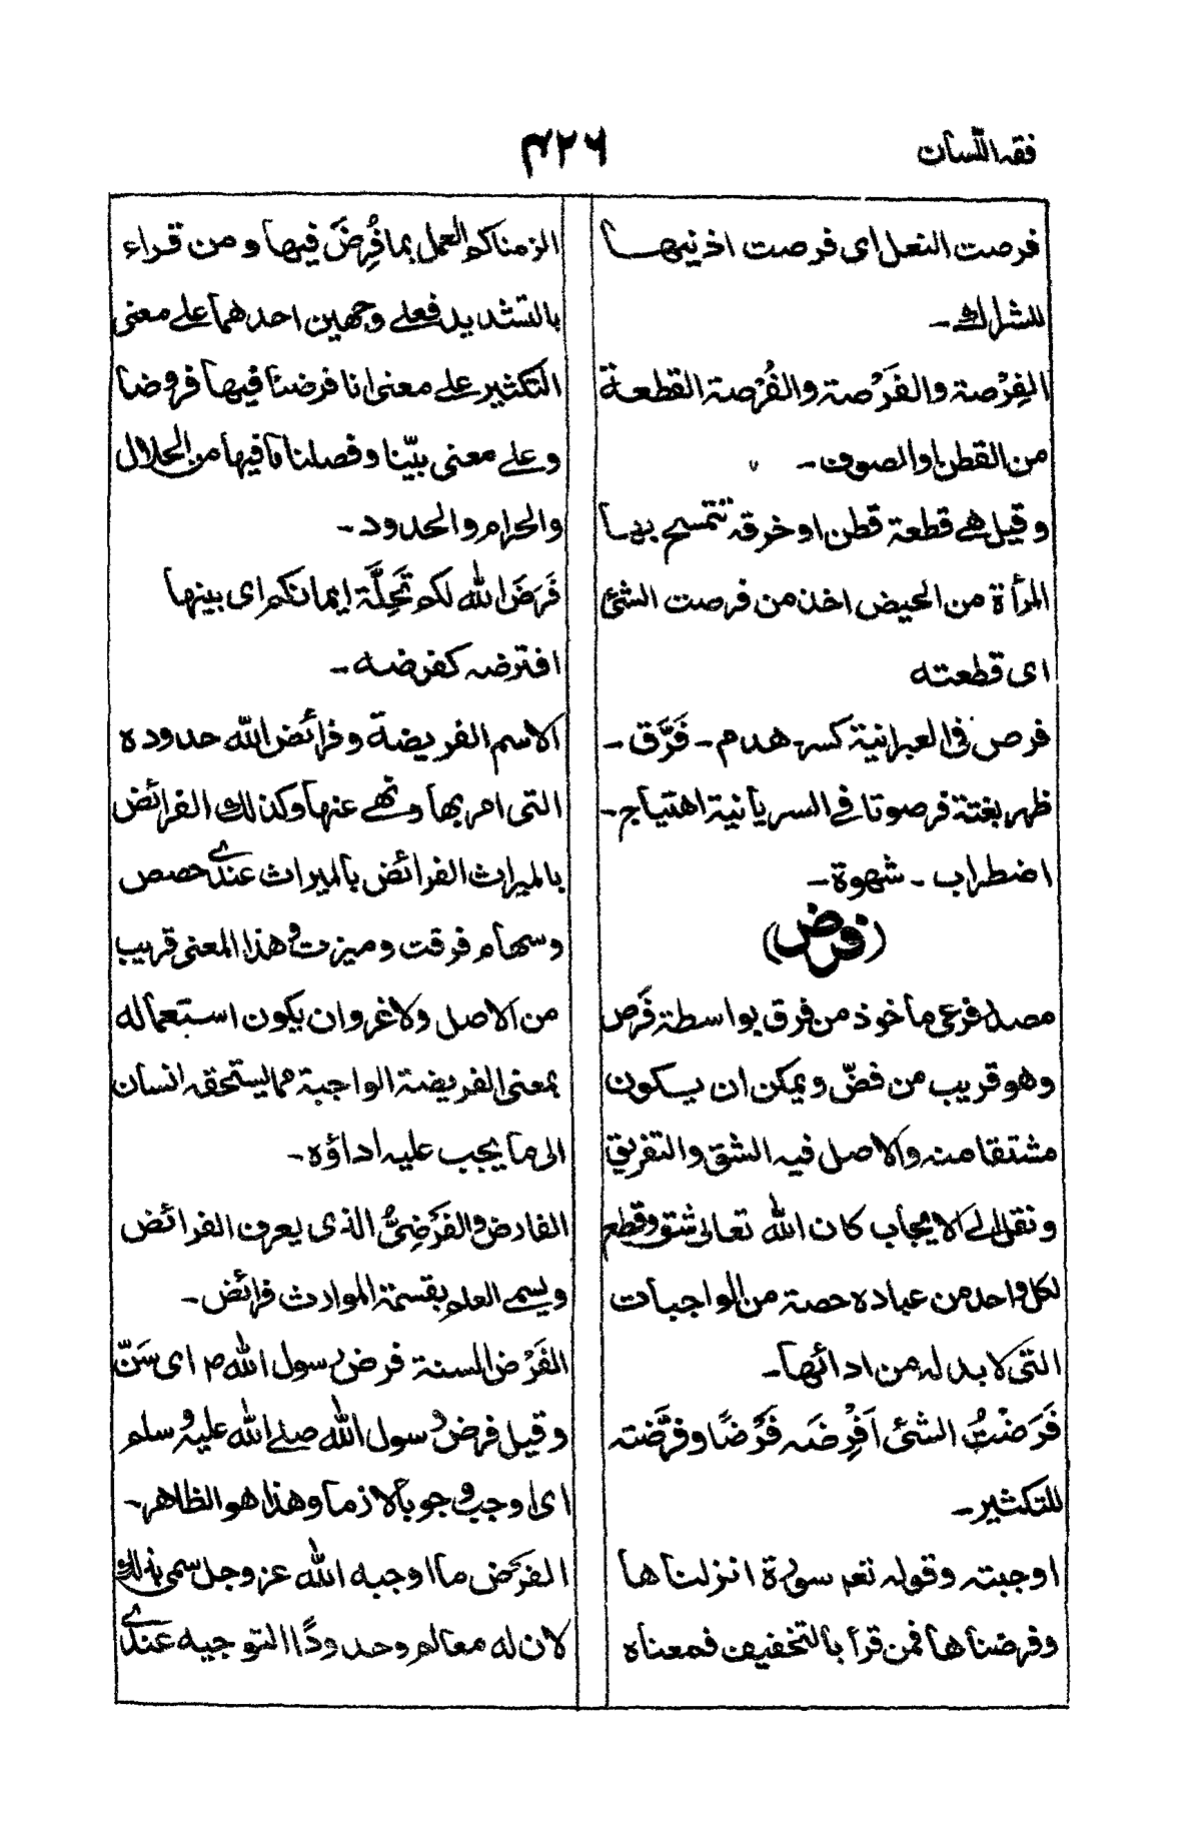 فقه اللسان
۴۲۶
فرصت النعل ای فرصت اذنیها
للشراك ـ
الفِرْصة والفَرْصة والفُرْصة القطعة
من القطن او الصوف ـ
وقیل هی قطعة قطن او خرقة تتمسح بها
المرأة من الحیض اخذ من فرصت الشئ
ای قطعته
فرص فی العبرانیة کسر هدم ـ فَرَّق ـ
ظهر بغتة فرصوتا فی السریانیة اهتیاج ـ
اضطراب ـ شهوة ـ
(فرض)
مصدر فرعی مأخوذ من فرق بواسطة فَرَص
وهو قریب من فضّ ویمکن ان یکون
مشتقا منه والاصل فیه الشق والتفریق
ونقل الی الایجاب کان الله تعالی شق وقطع
لکل واحد من عباده حصة من الواجبات
التی لا بد له من ادائها ـ
فَرَضْتُ الشئ اَفْرِضَه فَرْضًا وفرَّضته
للتکثیر ـ
اوجبته وقوله تعم سورة انزلناها
وفرضناها فمن قرأ بالتخفیف فمعناه
الزمناکم العمل بما فُرِضَ فیها ومن قراء
بالتشدید فعلی وجهین احدهما علی معنی
التکثیر علی معنی انا فرضنا فیها فروضا
وعلی معنی بیّنا وفصلنا ما فیها من الحلال
والحرام والحدود ـ
فَرَضَ الله لکم تَحِلَّة ایمانکم ای بینها
افترضه کفرضه ـ
الاسم الفریضة وفرائض الله حدوده
التی امر بها ونهی عنها وکذلك الفرائض
بالمیراث الفرائض بالمیراث عندی حصص
وسهام فرقت ومیزت وهذا المعنی قریب
من الاصل ولا غرو ان یکون استعماله
بمعنی الفریضة الواجبة مما یستحقه انسان
الی ما یجب علیه اداؤه ـ
الفارض والفَرَضِیُّ الذی یعرف الفرائض
ویسمی العلم بقسمة الموارث فرائض ـ
الفَرْض السنة فرض رسول الله م ای سَنّ
وقیل فرض رسول الله صلی الله علیه وسلم
ای اوجب وجوبا لازما وهذا هو الظاهر ـ
الفَرْض ما اوجبه الله عز وجل سمی بذلك
لان له معالم وحدودًا التوجیه عندی